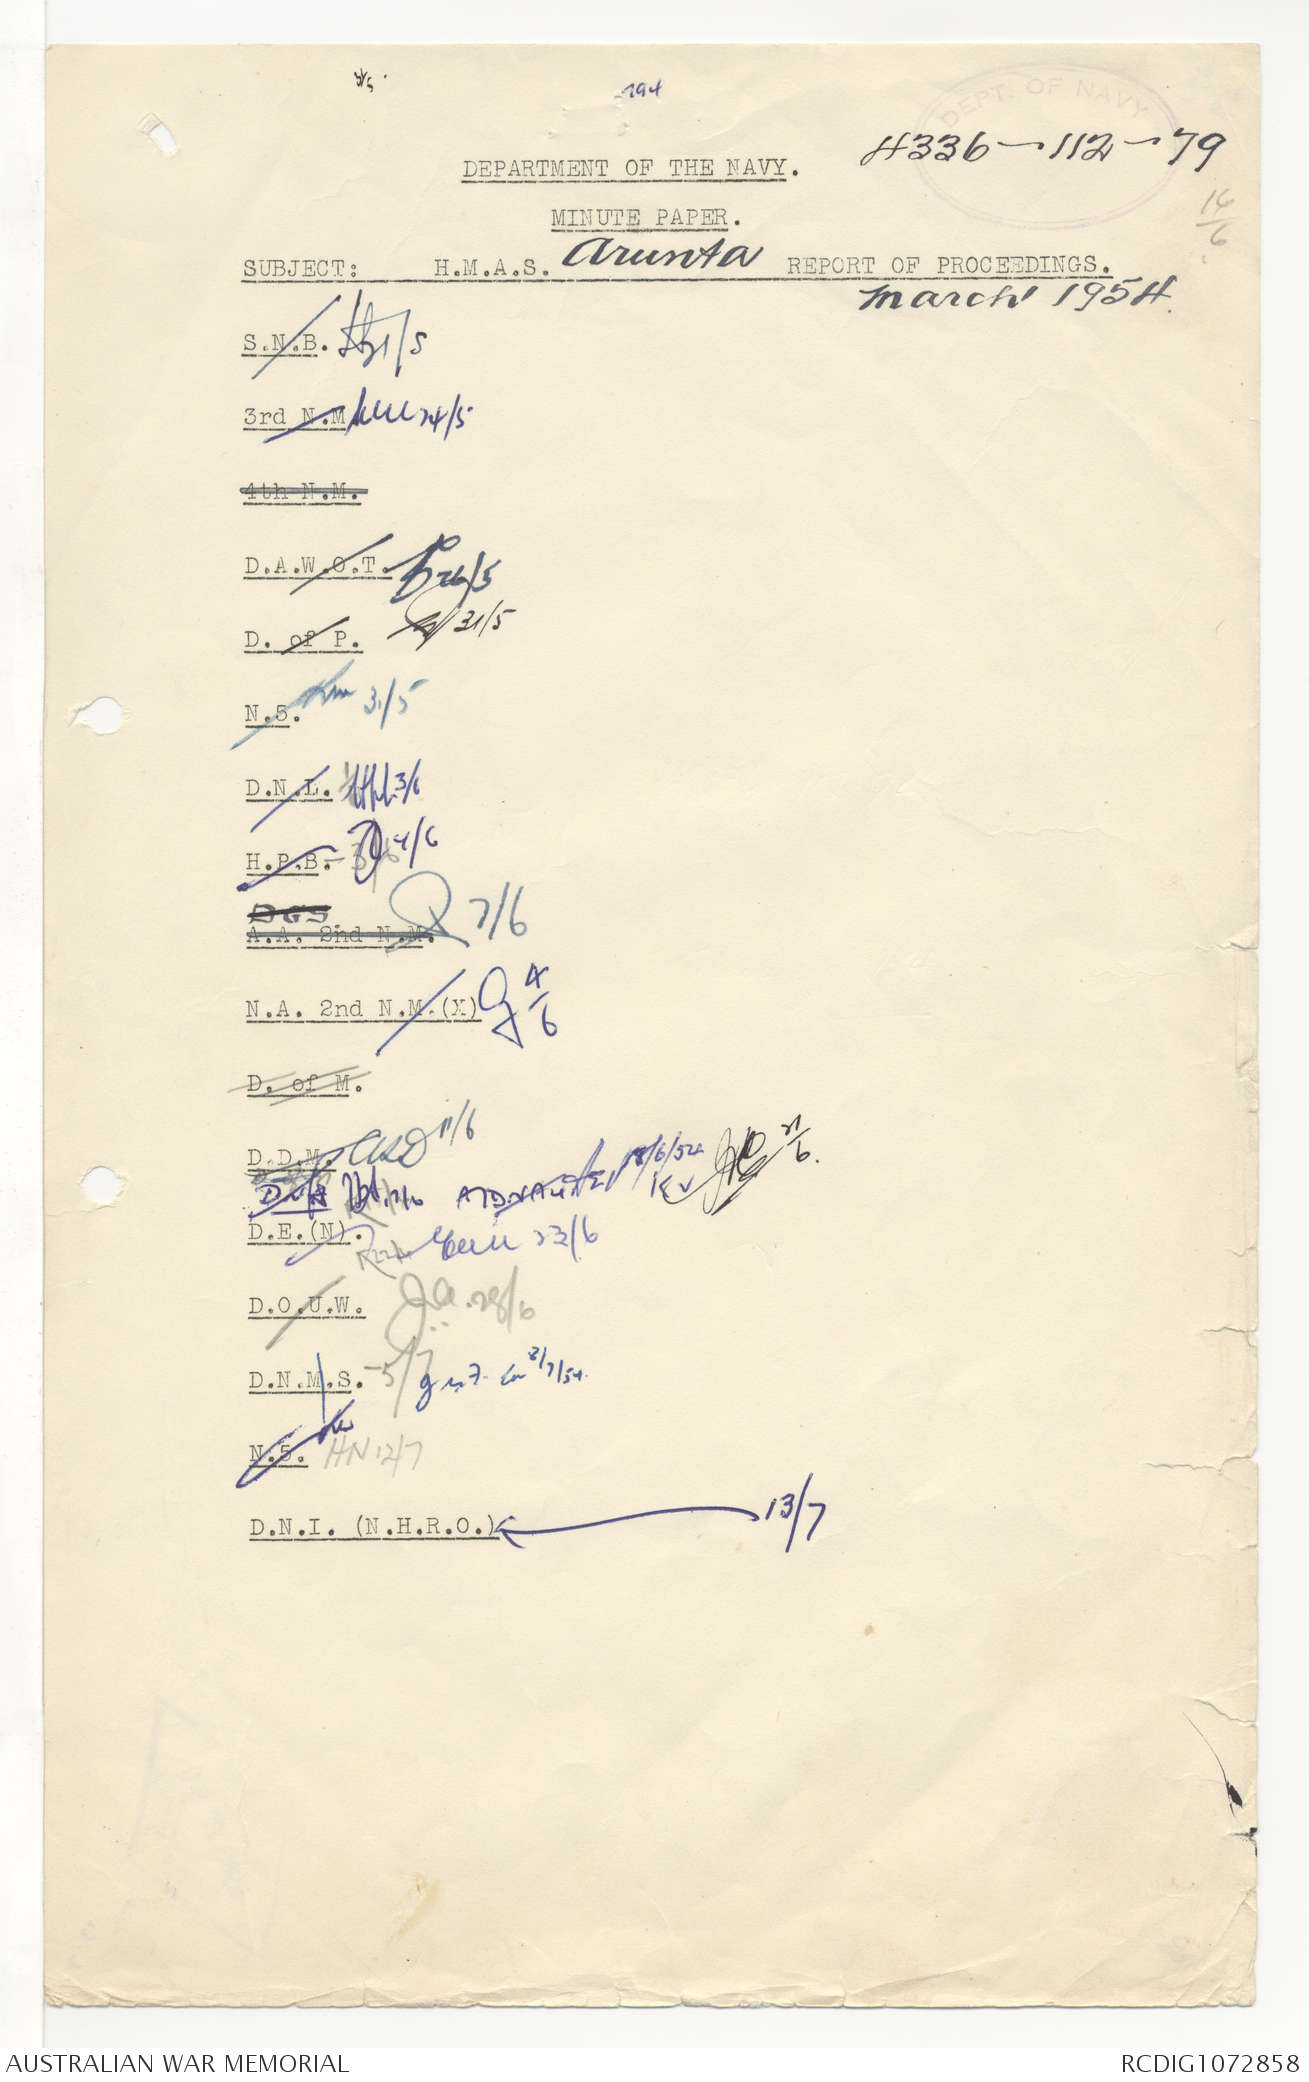 294
DEPT. OF NAVY
4336-112-79
DEPARTMENT OF THE NAVY.
14/6
MINUTE PAPER.
SUBJECT: H.M.A.S. Arunta REPORT OF PROCEEDINGS.
March 1954.
S.N.B.
3rd N.M. 24/5
4th N.M.
D.A.W.O.T. 26/5
D. of P. 31/5
N.5. 31/5
D.N.L. 3/6
H.P.B. 4/6
DGS
A.A. 2nd N.M. 7/6
N.A. 2nd N.M.(X) 4/6
D. of M.
D.D.M. 11/6
18/6/54 21/6.
D.E.(N). 23/6
D.O.U.W. 28/6
D.N.M.S. -5/7 8/7/54.
N.5. HN 12/7
D.N.I. (N.H.R.O.) 13/7
AUSTRALIAN WAR MEMORIAL
RCDIG1072858